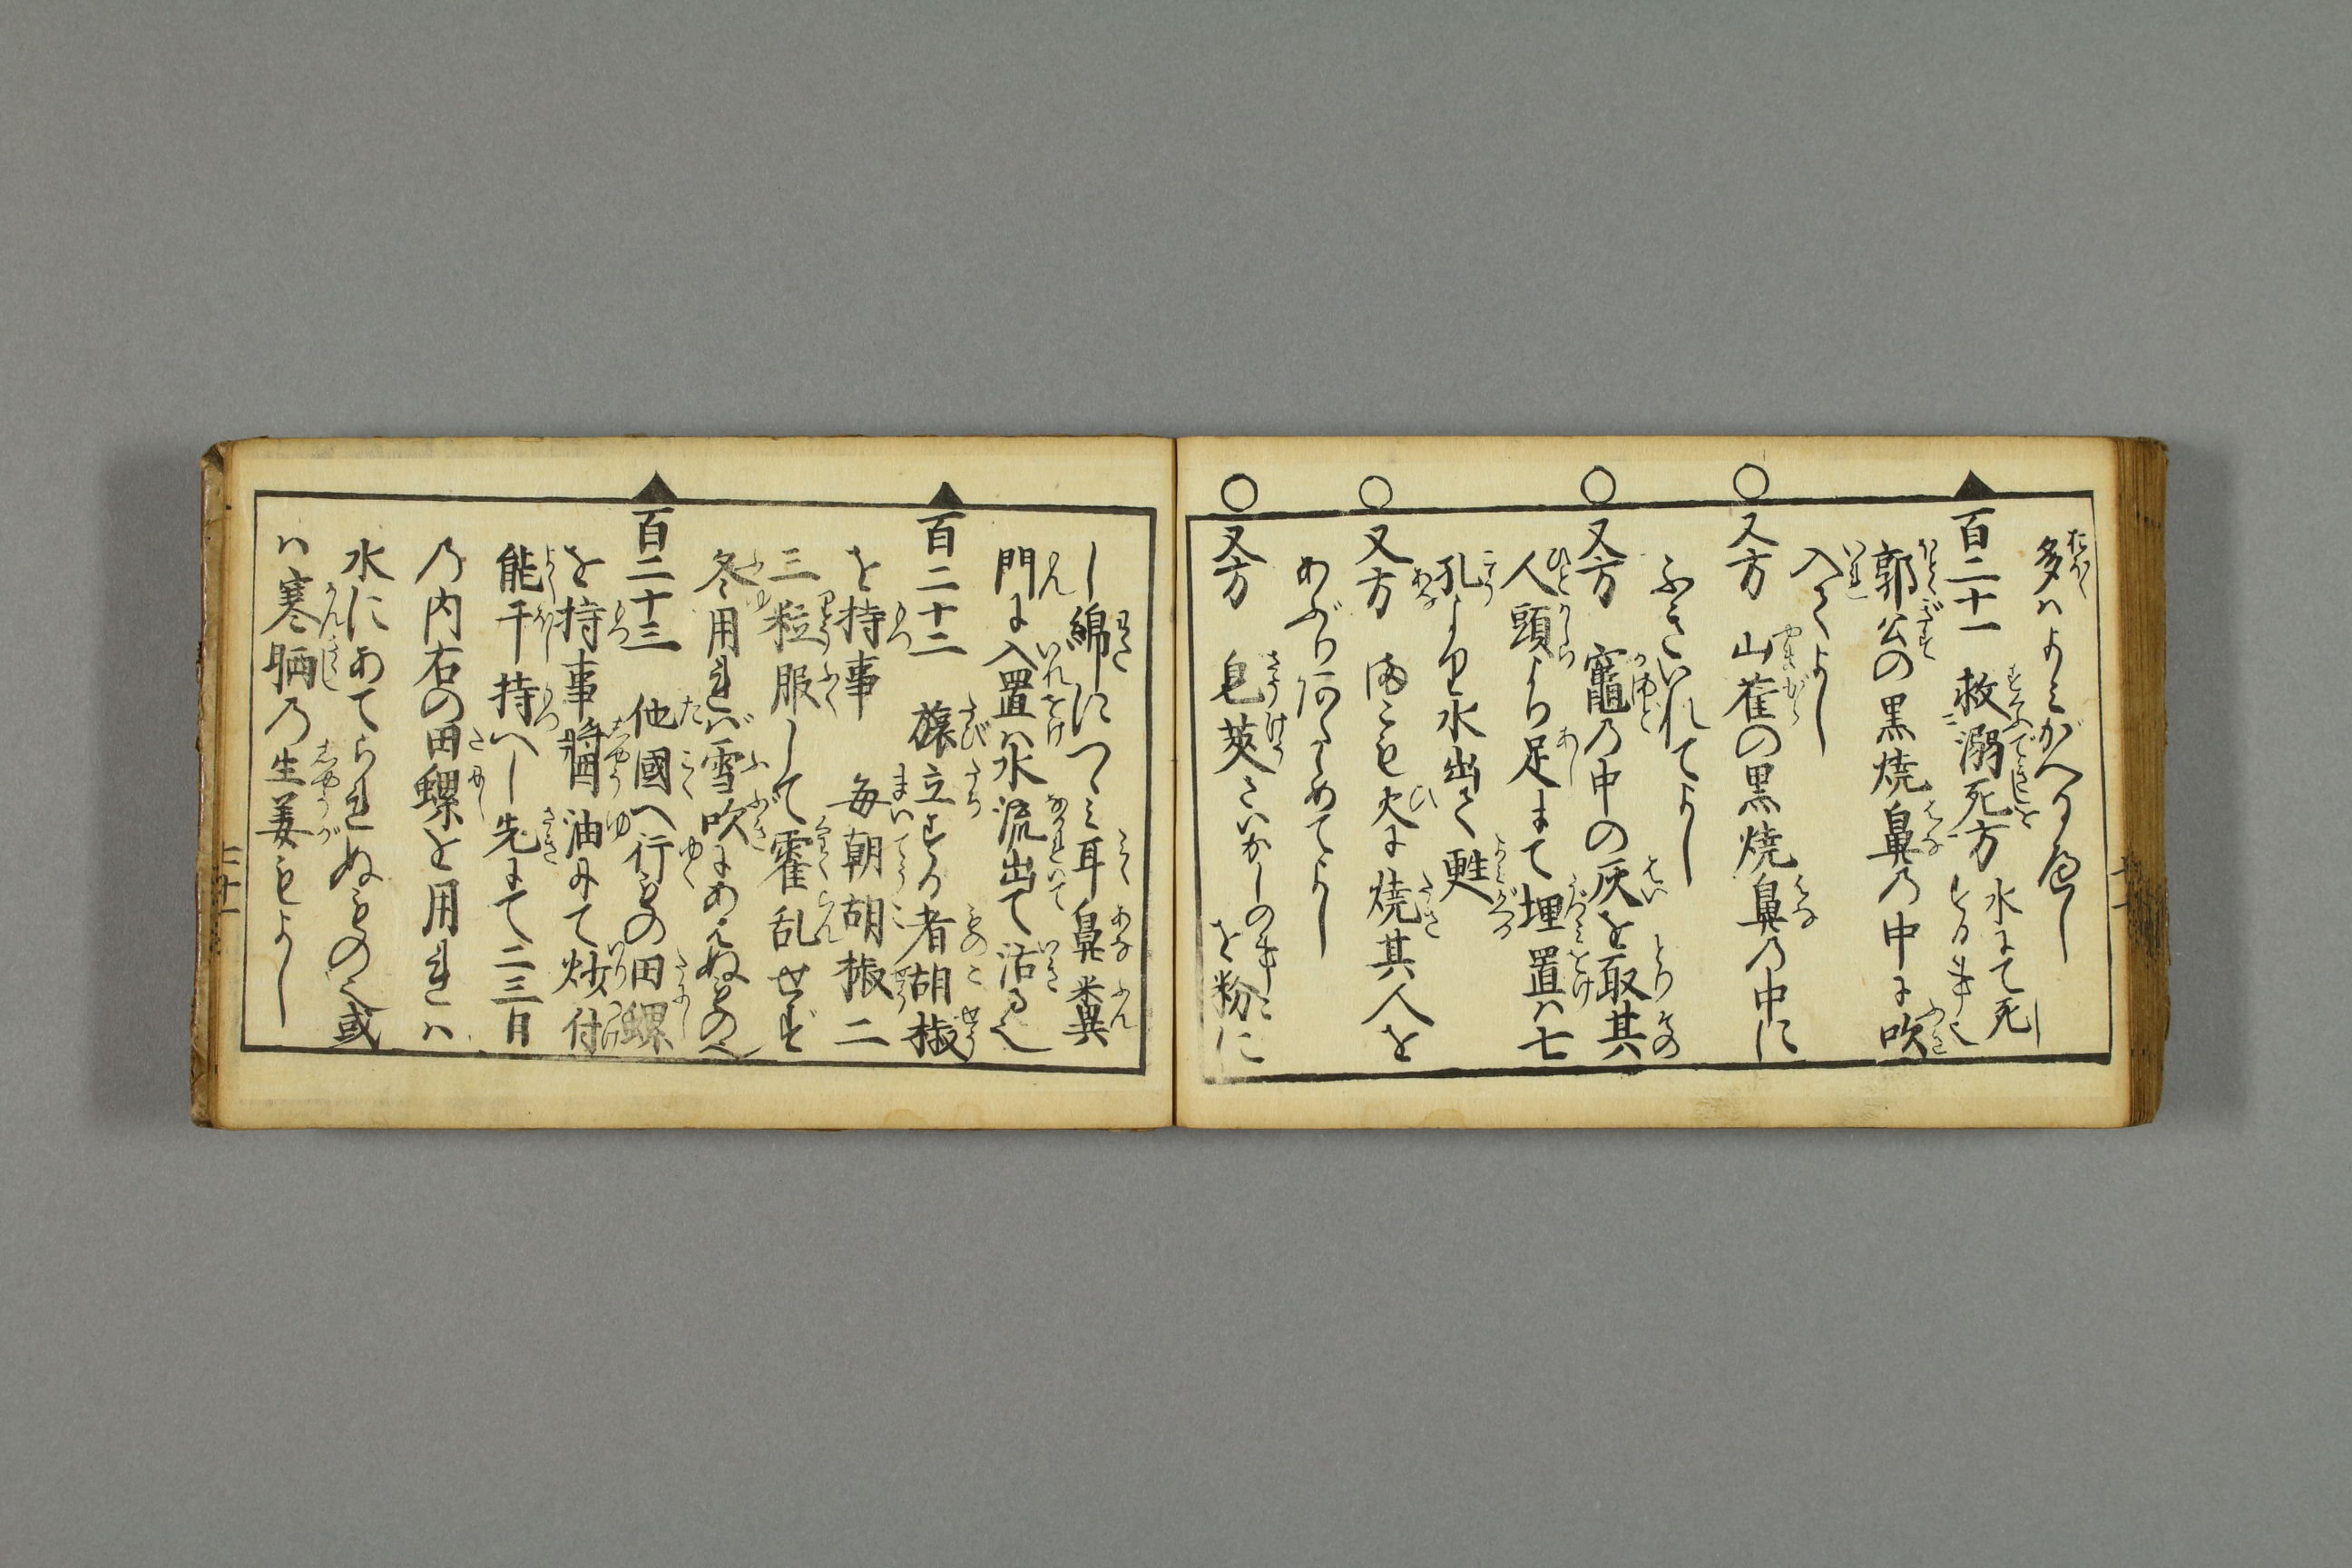 多ハよみがへるべし
百二十一 救溺死方 水にて死
するき也
郭公の黒焼鼻乃中に吹
入てよし
又方 山雀の黒焼鼻乃中に
ふきいれてよし
又方 竈乃中の灰を取其
人頭より足まて埋置ハ七
孔より水出て甦
又方 火に焼其人を
あぶりあたゝめてよし
又方 皂莢さいかしの
を粉に
し綿につゝミ耳鼻糞
門に入置ハ水流出て活る也
百二十二 旅立する者胡椒
を持事 毎朝胡椒二
三粒服して霍乱せず
冬用れバ雪吹にあハぬもの也
百二十三 他國へ行もの田螺
を持事醤油にて炒付
能干持へし先にて二三日
乃内右の田螺を用れハ
水にあてられぬもの也或
ハ寒晒乃生姜もよし
二十一